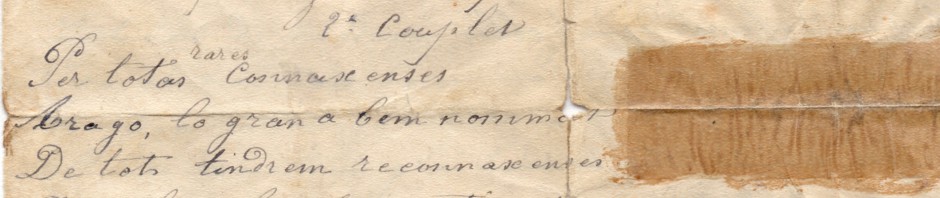 2e Couplet
Per totas rares Connaxenses
Arago, lo gran a bem nommat
De tots tindrem reconnaxenses